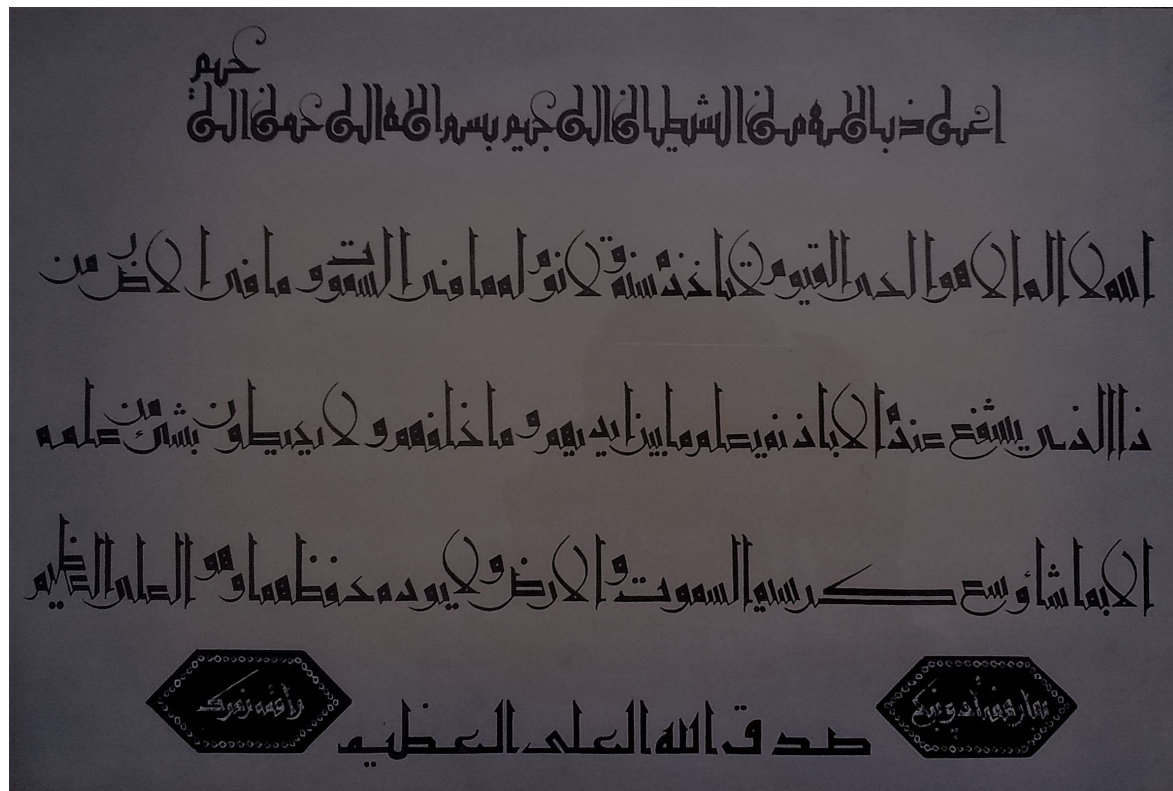 اعوذ بالله من الشيطان الرجيم بسم الله الرحمن الرحيم
الله لا اله الا هو الحى القيوم لا تاخذه سنة و لا نوم له ما فى السموت و ما فى الارض من
ذا الذى يشفع عنده الا باذنه يعلم ما بين ايديهم و ما خلفهم و لا يحيطون بشئ من علمه
الا بما شاؤ وسع كرسيه السموت و الارض و لا يوده حفظهما و هو العلى العظيم
صدق الله العلى العظيم